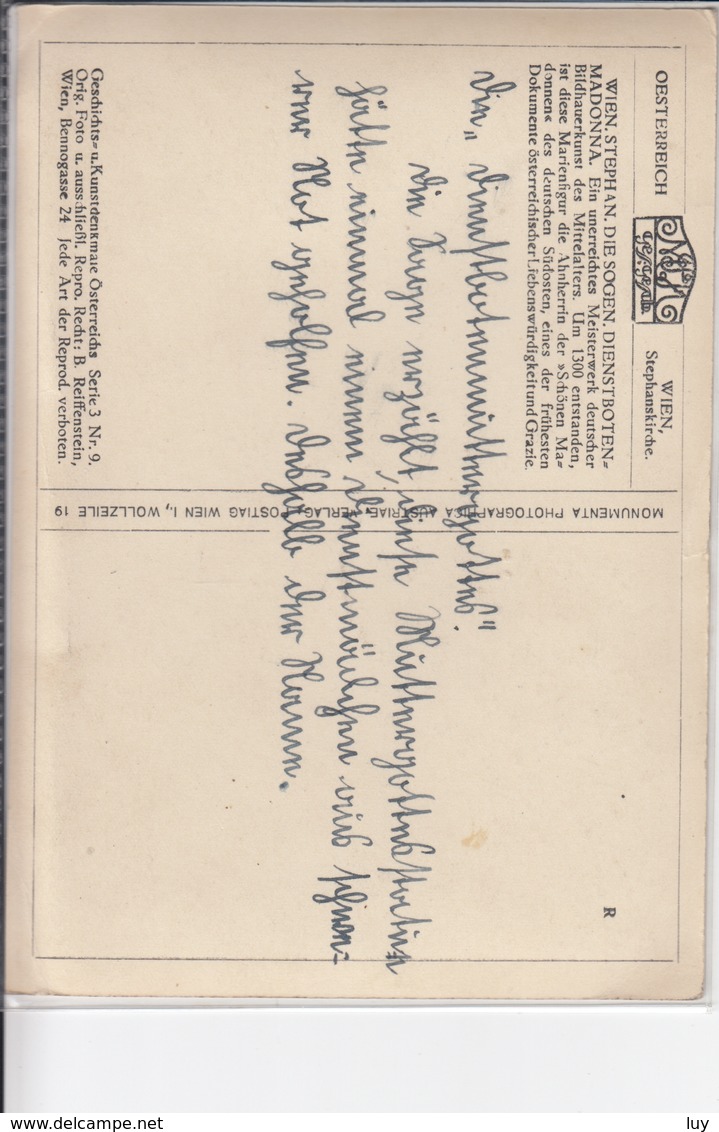 OESTERREICH
WIEN,
Stephanskirche.
WIEN. STEPHAN. DIE SOGEN. DIENSTBOTEN=
MADONNA. Ein unerreichtes Meisterwerk deutscher
Bildhauerkunst des Mittelalters. Um 1300 entstanden,
ist diese Marienfigur die Ahnherrin der »Schönen Ma=
donnen« des deutschen Südosten, eines der frühesten
Dokumente österreichischer Liebenswürdigkeit und Grazie.
Die „Dienstbotenmuttergottes"
Die Sage erzählt, diese Muttergottesstatue
hätte einmal einem Dienstmädchen aus schwe=
rer Not geholfen. Deshalb der Name.
Geschichts= u. Kunstdenkmale Österreichs Serie 3 Nr. 9.
Orig. Foto u. ausschließl. Repro. Recht: B. Reiffenstein,
Wien, Bennogasse 24 Jede Art der Reprod. verboten.
MONUMENTA PHOTOGRAPHICA AUSTRIAE, VERLAG: POSTIAG WIEN I., WOLLZEILE 19
R
www.delcampe.net
luy